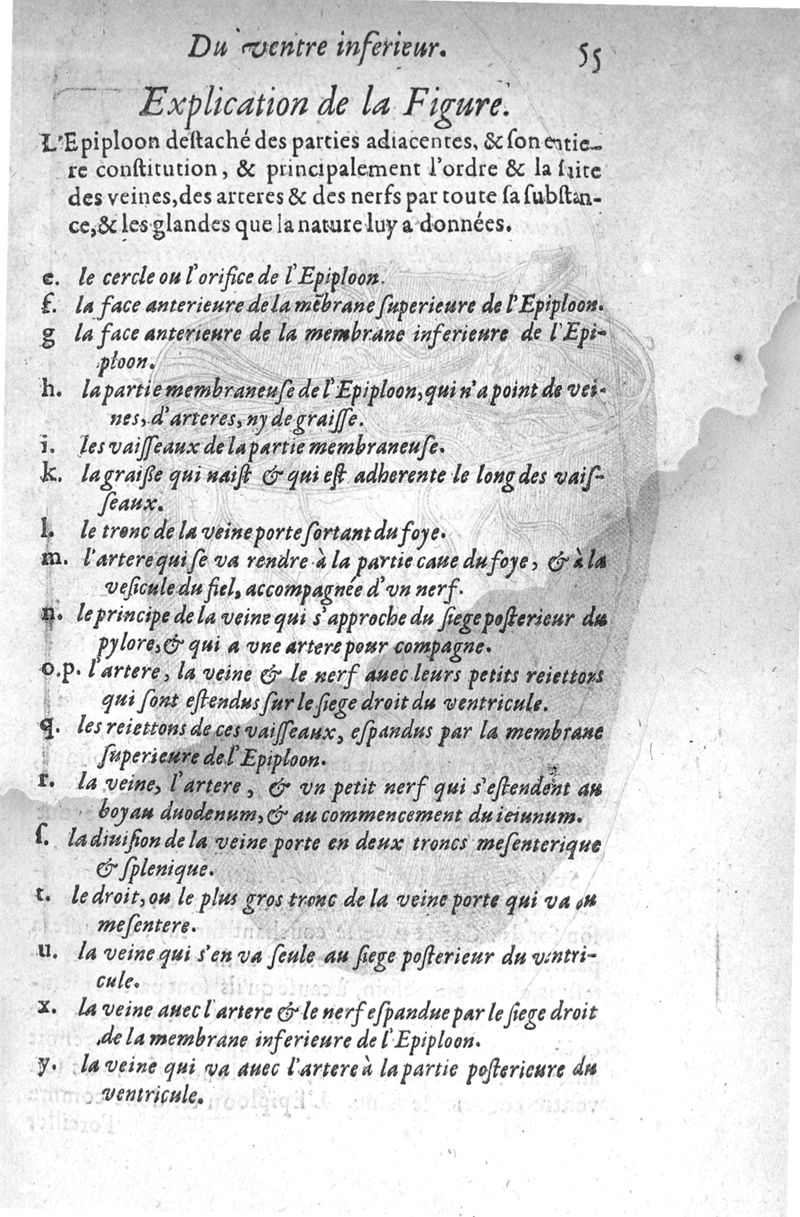 Du ventre inferieur. 55
Explication de la Figure.
L'Epiploon destaché des parties adiacentes, & son entie-
re constitution, & principalement l'ordre & la suite
des veines, des arteres & des nerfs par toute sa substan-
ce, & les glandes que la nature luy a données.
e. le cercle ou l'orifice de l'Epiploon.
f. la face anterieure de la mēbrane superieure de l'Epiploon.
g la face anterieure de la membrane inferieure de l'Epi-
ploon.
h. la partie membraneuse de l'Epiploon, qui n'a point de vei-
nes, d'arteres, ny de graisse.
i. les vaisseaux de la partie membraneuse.
k. la graisse qui naist & qui est adherente le long des vais-
seaux.
l. le tronc de la veine porte sortant du foye.
m. l'artere qui se va rendre à la partie caue du foye, & à la
vesicule du fiel, accompagnée d'vn nerf.
n. le principe de la veine qui s'approche du siege posterieur du
pylore, & qui a vne artere pour compagne.
o.p. l'artere, la veine & le nerf auec leurs petits reiettons
qui sont estendus sur le siege droit du ventricule.
q. les reiettons de ces vaisseaux, espandus par la membrane
superieure de l'Epiploon.
r. la veine, l'artere, & vn petit nerf qui s'estendent au
boyau duodenum, & au commencement du ieiunum.
ſ. la diuision de la veine porte en deux troncs mesenterique
& splenique.
t. le droit, ou le plus gros tronc de la veine porte qui va au
mesentere.
u. la veine qui s'en va seule au siege posterieur du ventri-
cule.
x. la veine auec l'artere & le nerf espandue par le siege droit
de la membrane inferieure de l'Epiploon.
y. la veine qui va auec l'artere à la partie posterieure du
ventricule.